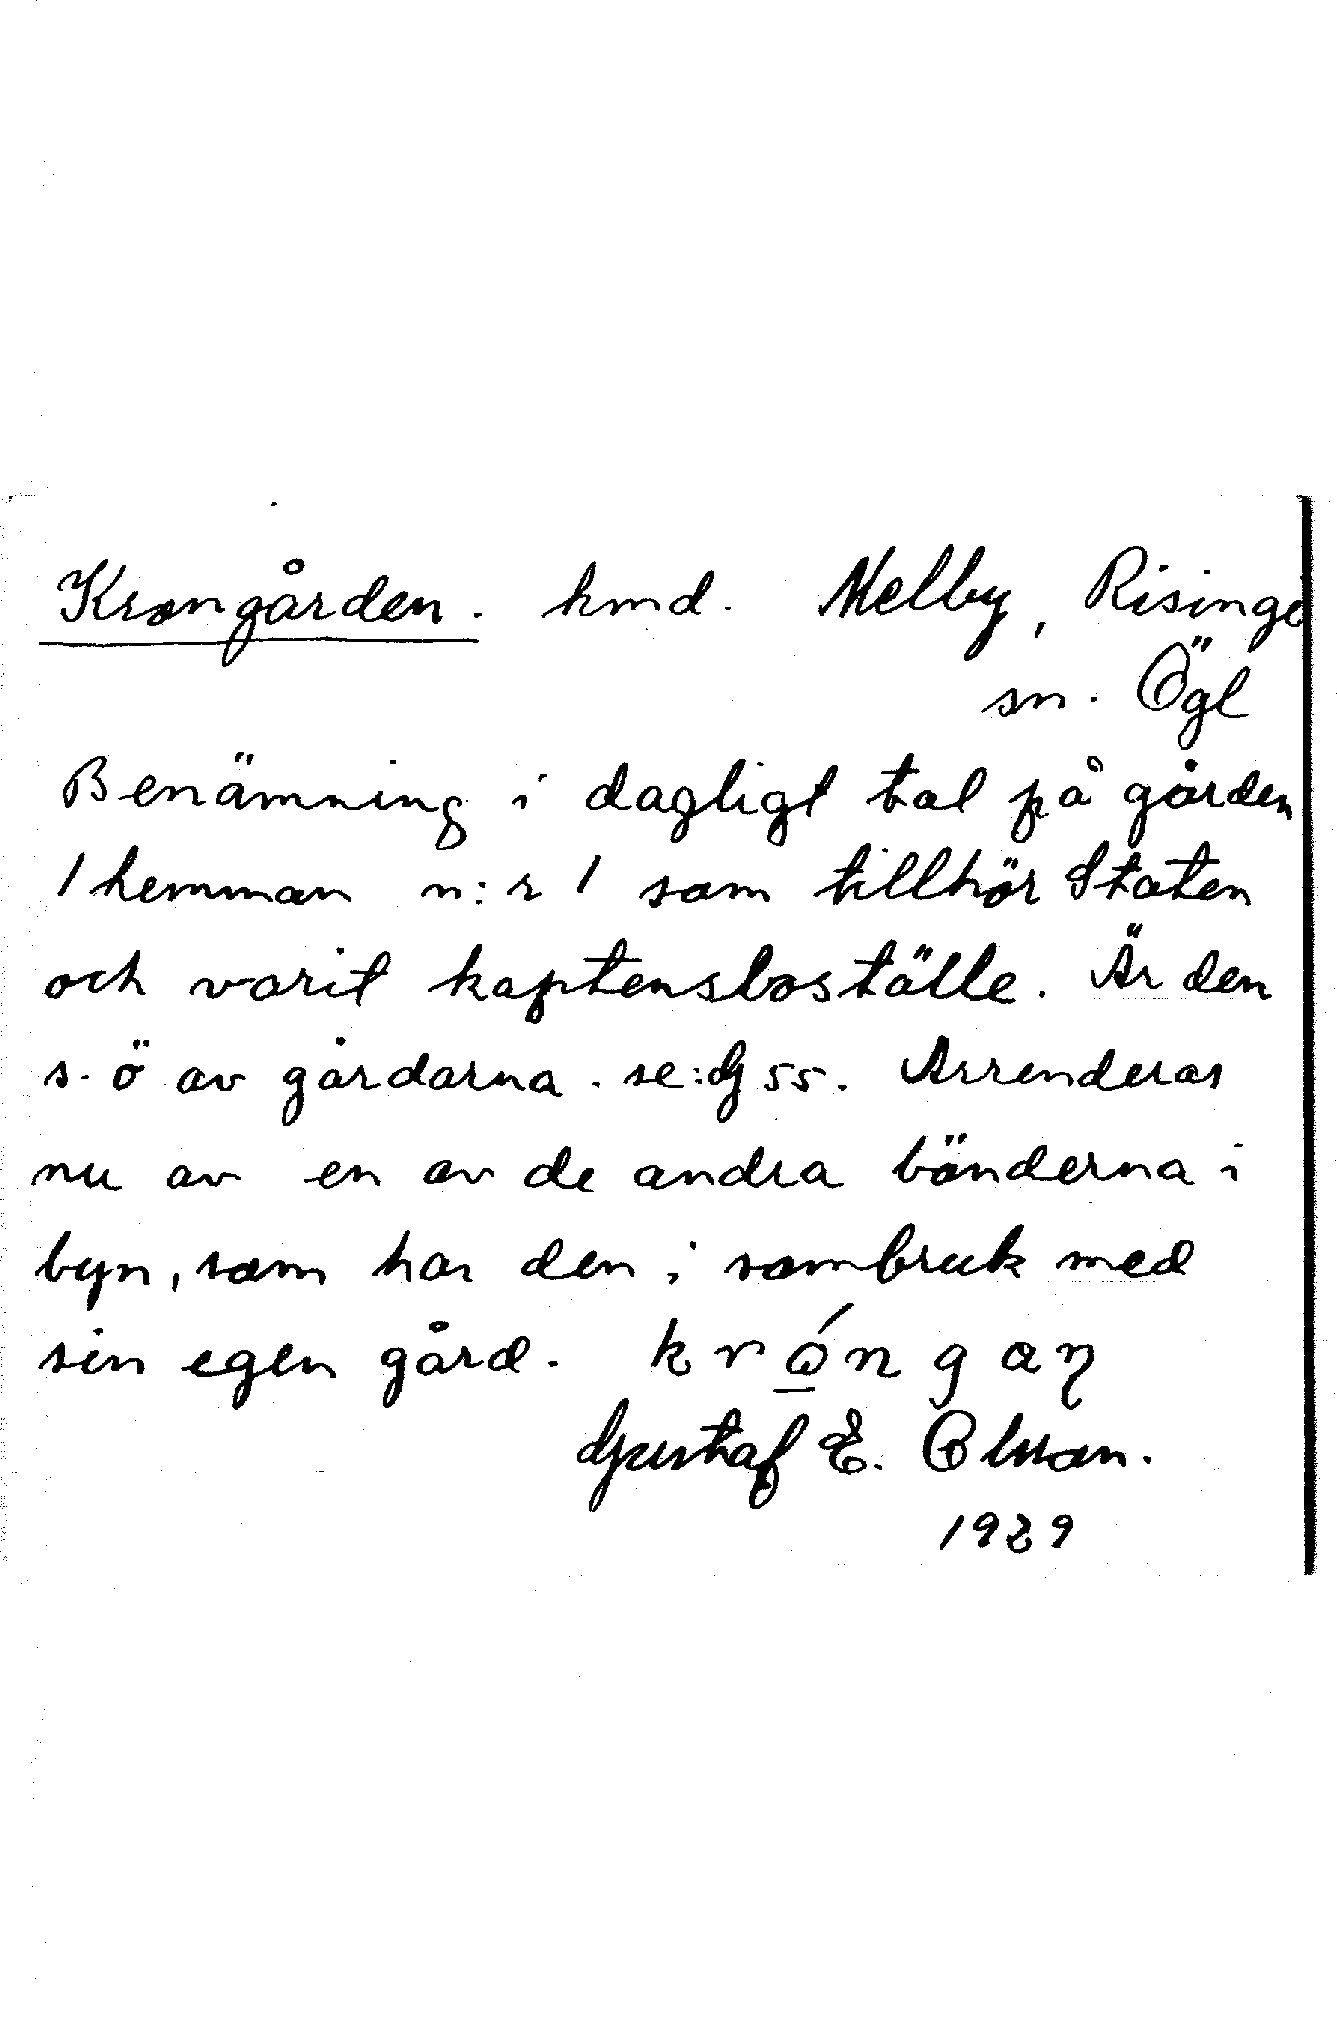 Krongården. hmd. Melby, Risinge
sn. Ögl
Benämning i dagligt tal på gården
1 hemman n:r 1 som tillhör Staten
och varit kaptensboställe. Är den
s. ö av gårdarna. se: G 55. Arrenderas
nu av en av de andra bönderna i
byn, som har den i sambruk med
sin egen gård.
Gustaf E. Olsson.
1929